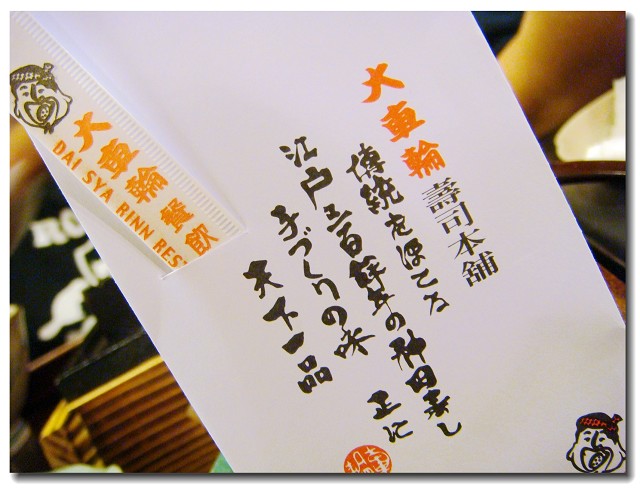 大車輪 餐飲
DAI SYA RINN RES
大車輪 壽司本舖
傳統を誇る
江戸三百餘年の神田寿し
手づくりの味 正に
天下一品